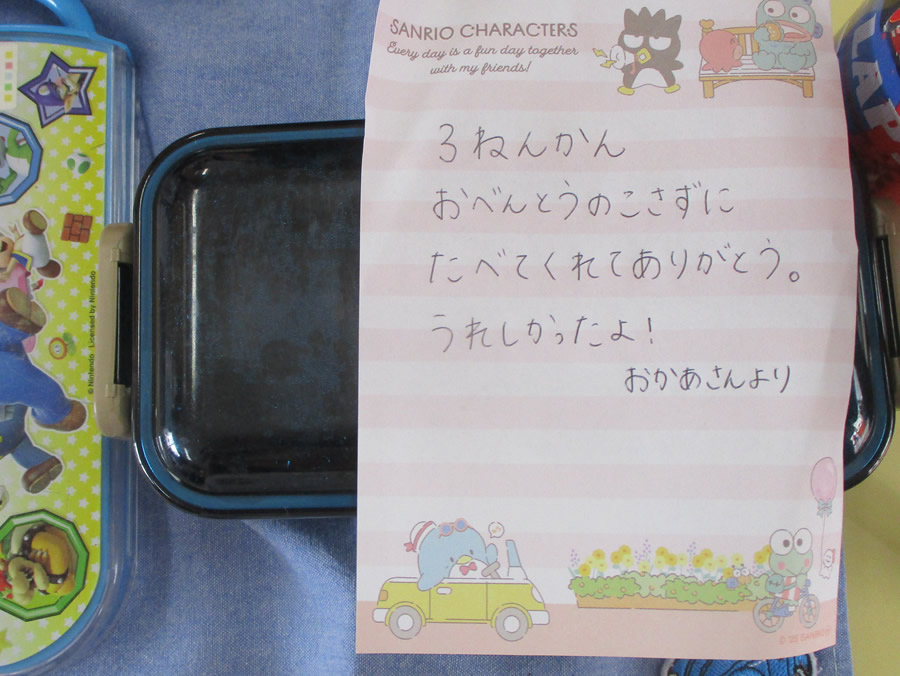 SANRIO CHARACTERS
Every day is a fun day together
with my friends!
3ねんかん
おべんとうのこさずに
たべてくれてありがとう。
うれしかったよ!
おかあさんより
© Nintendo Licensed by Nintendo
LAP